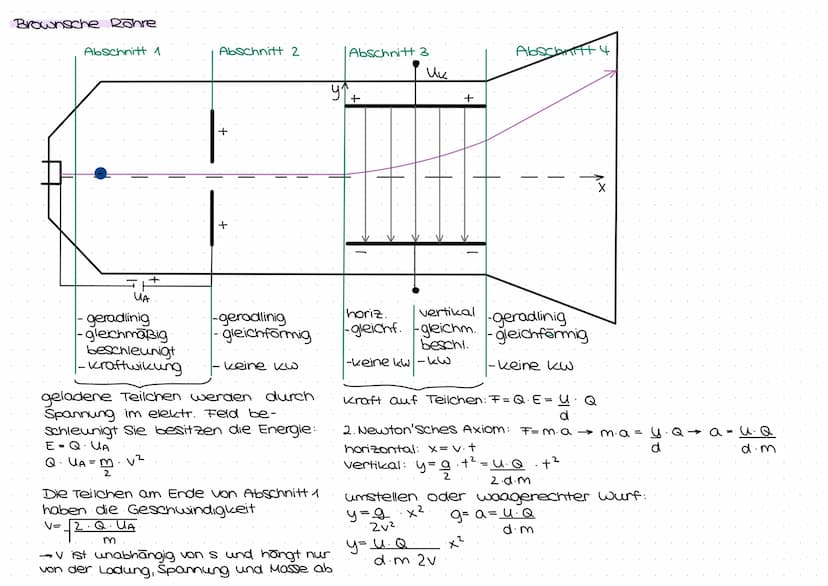 Brownsche Röhre
Abschnitt 1
Abschnitt 2
Abschnitt 3
Abschnitt 4
U_K
y
+ +
+
+
x
− −
− +
U_A
- geradlinig
- gleichmäßig
beschleunigt
- Kraftwikung
- geradlinig
- gleichförmig
- keine KW
horiz.
- gleichf.
- keine KW
vertikal
- gleichm.
beschl.
- KW
- geradlinig
- gleichförmig
- keine KW
geladene Teilchen werden durch
Spannung im elektr. Feld be-
schleunigt Sie besitzen die Energie:
E = Q · U_A
Q · U_A = m/2 · v²
Die Teilchen am Ende von Abschnitt 1
haben die Geschwindigkeit
v = √(2 · Q · U_A / m)
→ v ist unabhängig von s und hängt nur
von der Ladung, Spannung und Masse ab
Kraft auf Teilchen: F = Q · E = U/d · Q
2. Newton'sches Axiom: F = m · a → m · a = U/d · Q → a = U · Q / d · m
horizontal: x = v · t
vertikal: y = a/2 · t² = U · Q / 2 · d · m · t²
umstellen oder waagerechter Wurf:
y = g/2v² · x² g = a = U · Q / d · m
y = U · Q / d · m 2v x²